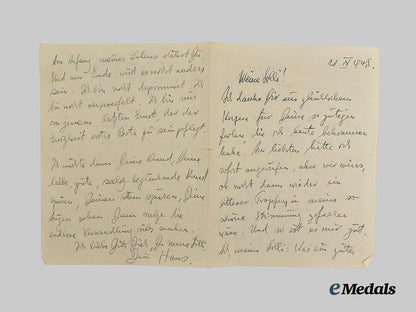 Am Anfang meines Lebens stehst Du.
Und am Ende wird es nicht anders
sein. Ich bin nicht deprimiert. Ich
bin nicht verzweifelt. Ich bin nur
von jenem letzten Ernst der der
Ewigkeit erster Bote zu sein pflegt.
Ich möchte dann Deine Hand, Deine
liebe, gute, Hand
spüren, Deinen Atem spüren, Deine
Augen sehen. Dann möge die
endlose Verwandlung sich senken.
Ich liebe Dich, Du meine Lilli.
Dein Hans.
10 IV 1948.
Meine Lilli!
Ich danke Dir aus glücklichem
Herzen für Deine so gütigen
Zeilen, die ich heute bekommen
habe. Am liebsten hätte ich
sofort angerufen, aber wer weiss,
ob nicht dann wieder ein
bitterer Tropfen in meine so
schöne Stimmung gefallen
wäre. Und so ist es mir gut.
Ach, meine Lilli: Was ein guter
eMedals